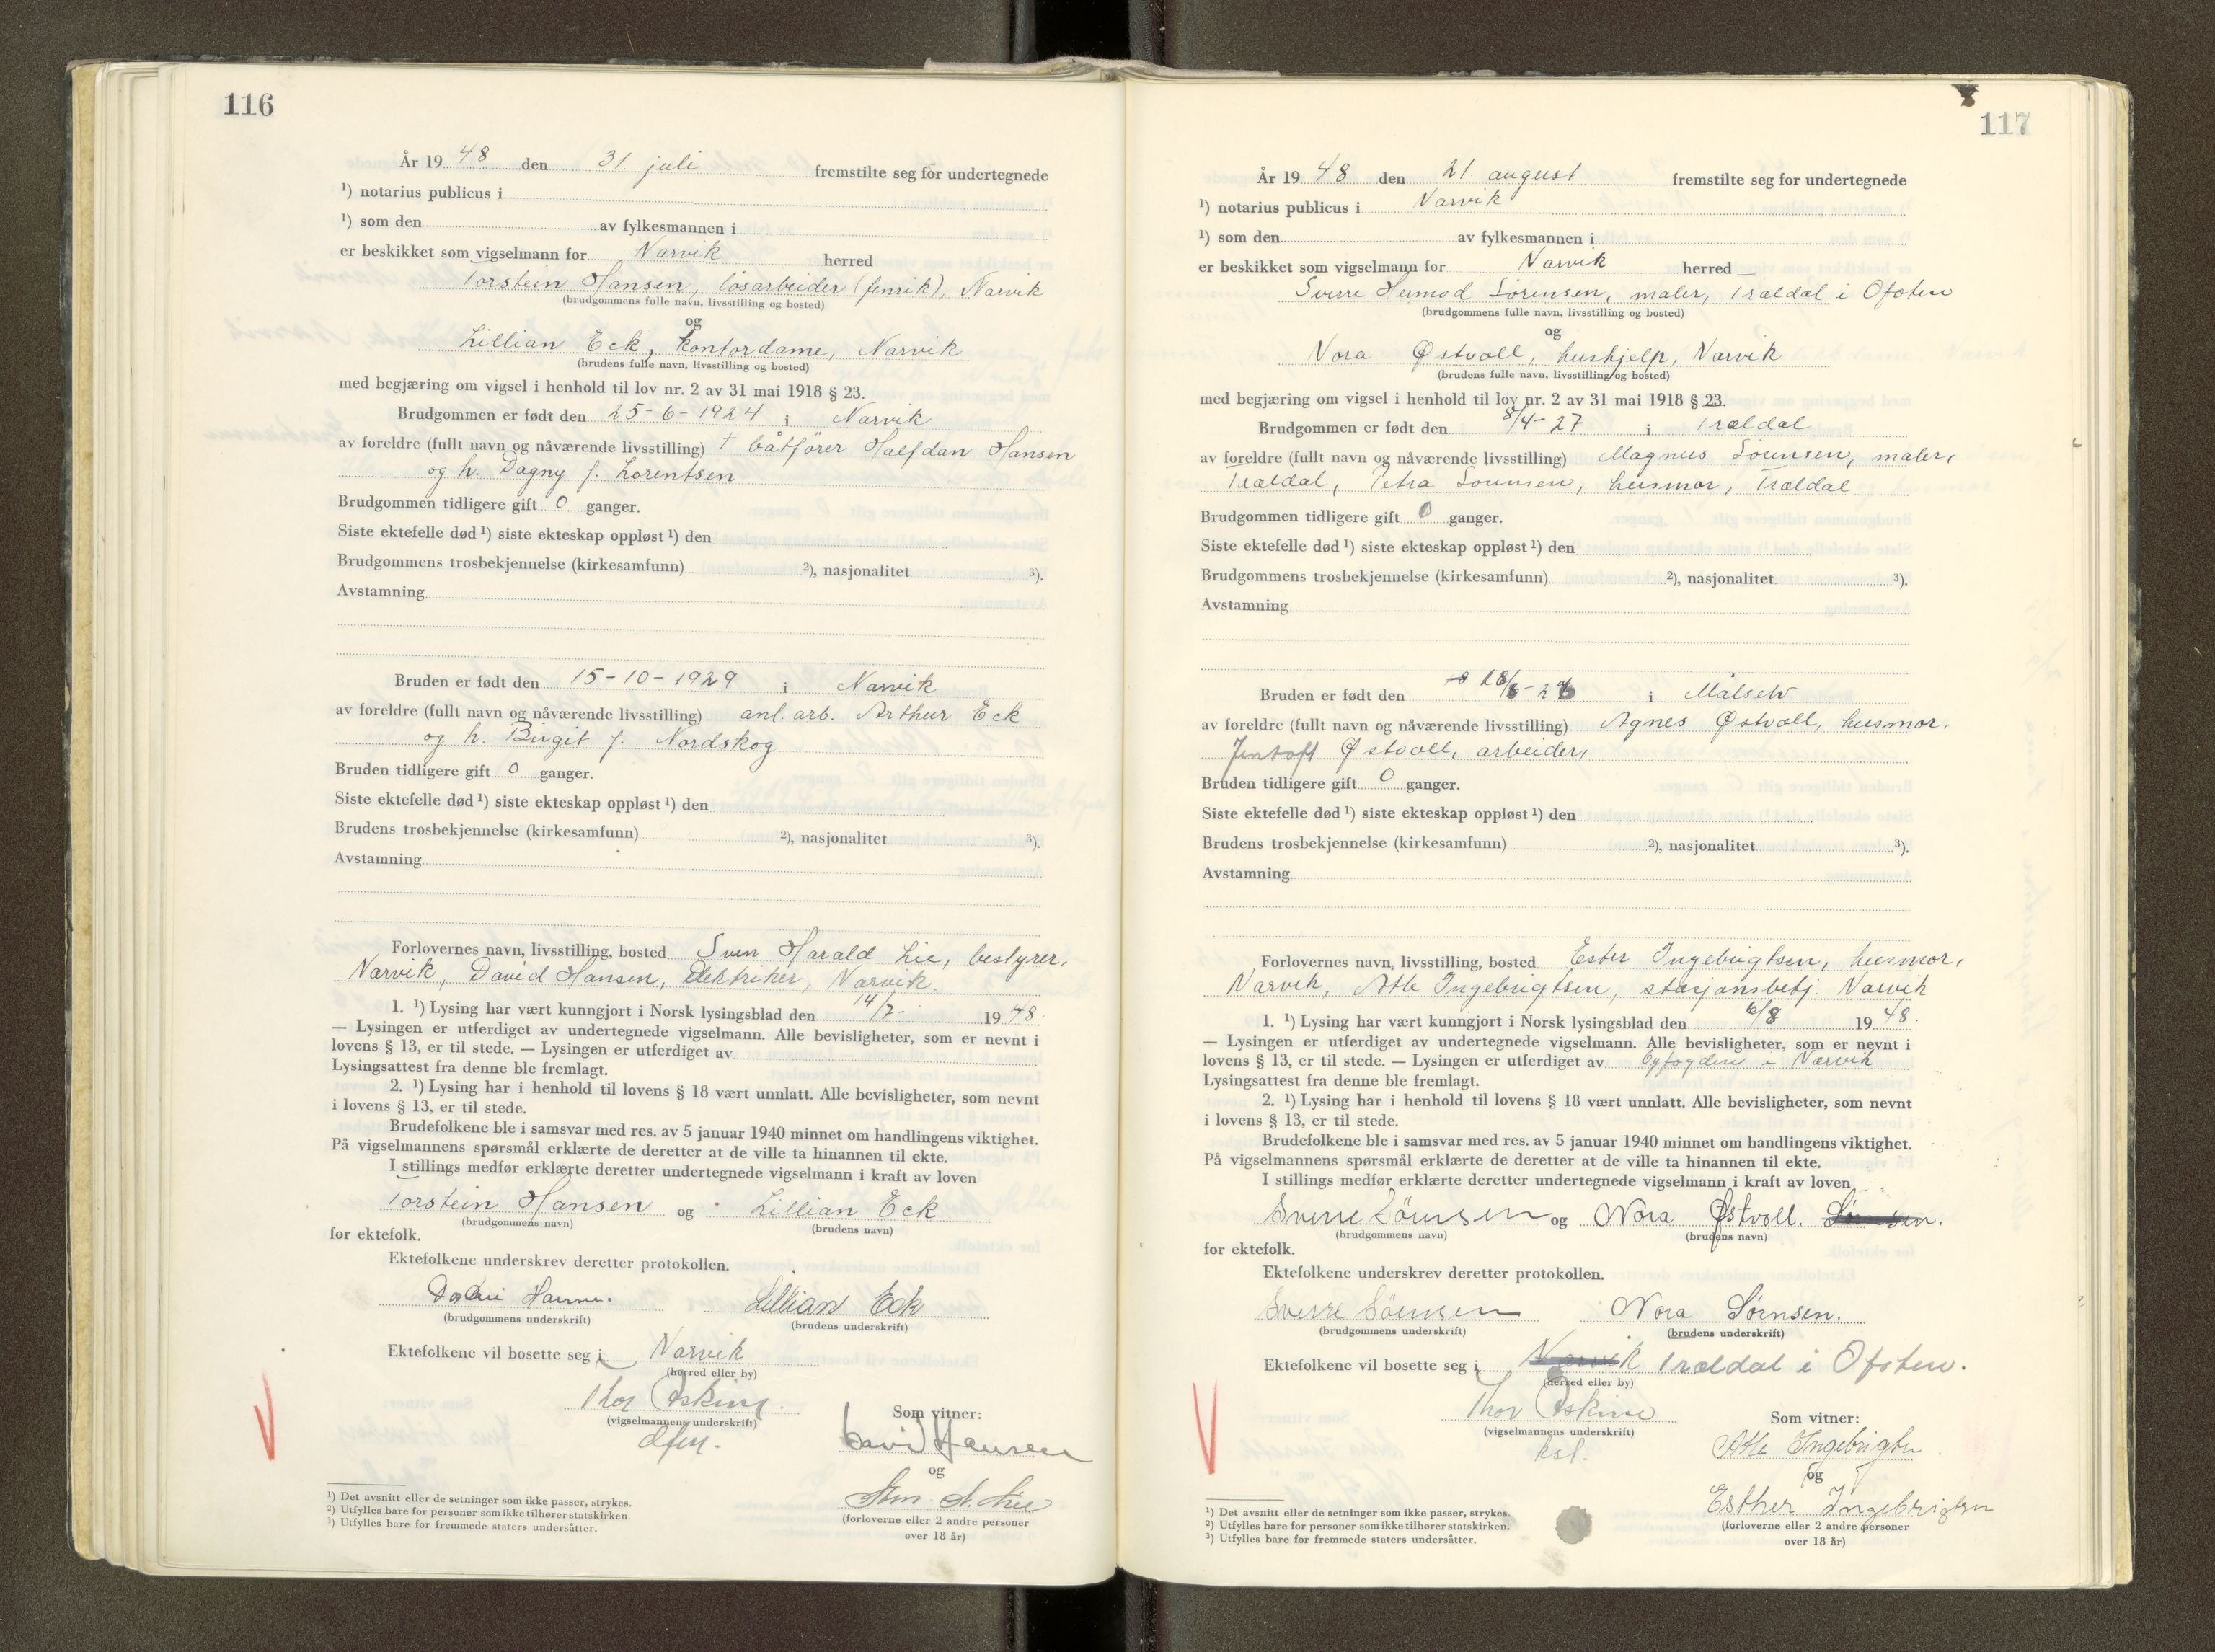 116
År 19 48 den 31. juli fremstilte seg for undertegnede
¹) notarius publicus i
¹) som den av fylkesmannen i
er beskikket som vigselmann for Narvik herred
Torstein Hansen, løsarbeider (fenrik), Narvik
(brudgommens fulle navn, livsstilling og bosted)
og
Lillian Eck, kontordame, Narvik
(brudens fulle navn, livsstilling og bosted)
med begjæring om vigsel i henhold til lov nr. 2 av 31 mai 1918 § 23.
Brudgommen er født den 25-6-1924 i Narvik
av foreldre (fullt navn og nåværende livsstilling) † båtfører Halfdan Hansen
og h. Dagny f. Lorentsen
Brudgommen tidligere gift 0 ganger.
Siste ektefelle død ¹) siste ekteskap oppløst ¹) den
Brudgommens trosbekjennelse (kirkesamfunn) ²), nasjonalitet ³).
Avstamning
Bruden er født den 15-10-1929 i Narvik
av foreldre (fullt navn og nåværende livsstilling) anl. arb. Arthur Eck
og h. Birgit f. Nordskog
Bruden tidligere gift 0 ganger.
Siste ektefelle død ¹) siste ekteskap oppløst ¹) den
Brudens trosbekjennelse (kirkesamfunn) ²), nasjonalitet ³).
Avstamning
Forlovernes navn, livsstilling, bosted Sven Harald Lie, bestyrer,
Narvik, David Hansen, elektriker, Narvik.
1. ¹) Lysing har vært kunngjort i Norsk lysingsblad den 14/7- 19 48.
— Lysingen er utferdiget av undertegnede vigselmann. Alle bevisligheter, som er nevnt i
lovens § 13, er til stede. — Lysingen er utferdiget av
Lysingsattest fra denne ble fremlagt.
2. ¹) Lysing har i henhold til lovens § 18 vært unnlatt. Alle bevisligheter, som nevnt
i lovens § 13, er til stede.
Brudefolkene ble i samsvar med res. av 5 januar 1940 minnet om handlingens viktighet.
På vigselmannens spørsmål erklærte de deretter at de ville ta hinannen til ekte.
I stillings medfør erklærte deretter undertegnede vigselmann i kraft av loven
Torstein Hansen og Lillian Eck
(brudgommens navn) (brudens navn)
for ektefolk.
Ektefolkene underskrev deretter protokollen.
Lillian Eck
(brudgommens underskrift) (brudens underskrift)
Ektefolkene vil bosette seg i Narvik
(herred eller by)
Thor
(vigselmannens underskrift)
Som vitner:
David Hansen
og
(forloverne eller 2 andre personer
over 18 år)
¹) Det avsnitt eller de setninger som ikke passer, strykes.
²) Utfylles bare for personer som ikke tilhører statskirken.
³) Utfylles bare for fremmede staters undersåtter.
117
År 19 48 den 21. august fremstilte seg for undertegnede
¹) notarius publicus i Narvik
¹) som den av fylkesmannen i
er beskikket som vigselmann for Narvik herred
Sverre Hermod Sørensen, maler, Trældal i Ofoten
(brudgommens fulle navn, livsstilling og bosted)
og
Nora Østvoll, hushjelp, Narvik
(brudens fulle navn, livsstilling og bosted)
med begjæring om vigsel i henhold til lov nr. 2 av 31 mai 1918 § 23.
Brudgommen er født den 8/4-27 i Trældal
av foreldre (fullt navn og nåværende livsstilling) Magnus Sørensen, maler,
Trældal, Petra Sørensen, husmor, Trældal
Brudgommen tidligere gift 0 ganger.
Siste ektefelle død ¹) siste ekteskap oppløst ¹) den
Brudgommens trosbekjennelse (kirkesamfunn) ²), nasjonalitet ³).
Avstamning
Bruden er født den i Målselv
av foreldre (fullt navn og nåværende livsstilling) Agnes Østvoll, husmor.
Jentoft Østvoll, arbeider,
Bruden tidligere gift 0 ganger.
Siste ektefelle død ¹) siste ekteskap oppløst ¹) den
Brudens trosbekjennelse (kirkesamfunn) ²), nasjonalitet ³).
Avstamning
Forlovernes navn, livsstilling, bosted Ester Ingebrigtsen, husmor,
Narvik, Atle Ingebrigtsen, stasjonsbetj. Narvik
1. ¹) Lysing har vært kunngjort i Norsk lysingsblad den 6/8 19 48.
— Lysingen er utferdiget av undertegnede vigselmann. Alle bevisligheter, som er nevnt i
lovens § 13, er til stede. — Lysingen er utferdiget av byfogden i Narvik
Lysingsattest fra denne ble fremlagt.
2. ¹) Lysing har i henhold til lovens § 18 vært unnlatt. Alle bevisligheter, som nevnt
i lovens § 13, er til stede.
Brudefolkene ble i samsvar med res. av 5 januar 1940 minnet om handlingens viktighet.
På vigselmannens spørsmål erklærte de deretter at de ville ta hinannen til ekte.
I stillings medfør erklærte deretter undertegnede vigselmann i kraft av loven
Sverre Sörensen og Nora Østvoll.
(brudgommens navn) (brudens navn)
for ektefolk.
Ektefolkene underskrev deretter protokollen.
Sverre Sörensen Nora Sørnsen.
(brudgommens underskrift) (brudens underskrift)
Ektefolkene vil bosette seg i Narvik Trældal i Ofoten.
(herred eller by)
Thor
(vigselmannens underskrift)
kst.
Som vitner:
Atle Ingebrigtsen
og
Esther Ingebrigtsen
(forloverne eller 2 andre personer
over 18 år)
¹) Det avsnitt eller de setninger som ikke passer, strykes.
²) Utfylles bare for personer som ikke tilhører statskirken.
³) Utfylles bare for fremmede staters undersåtter.